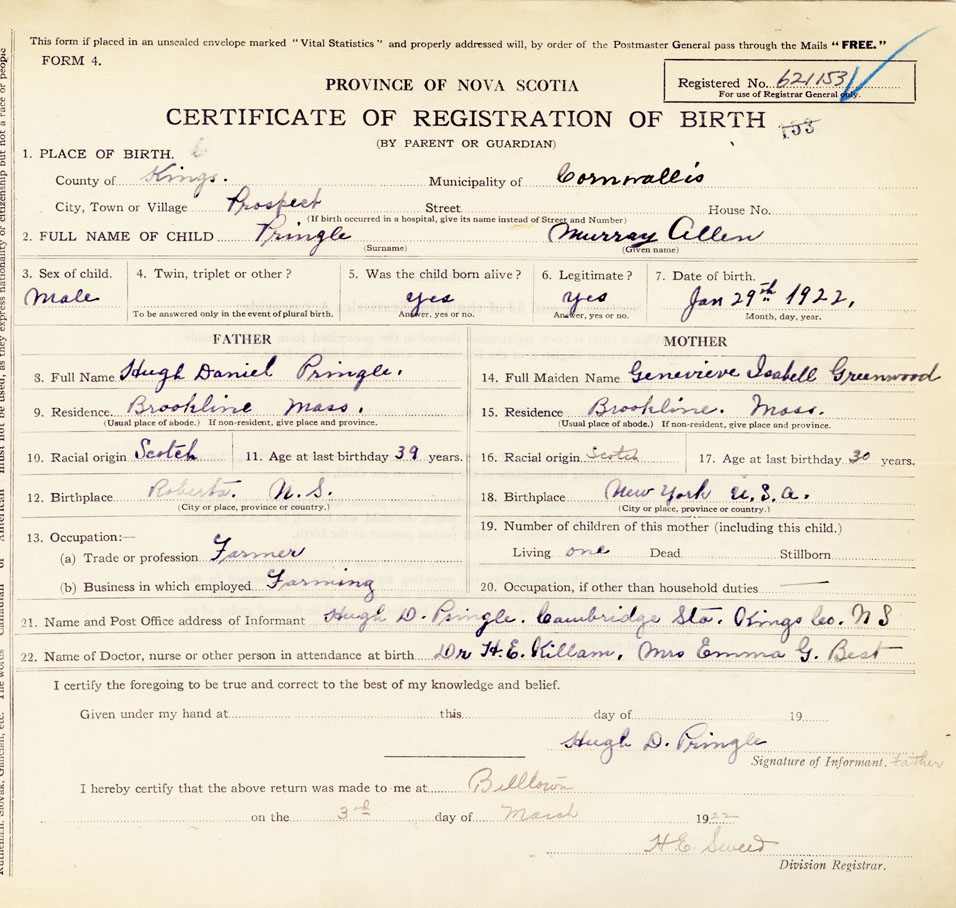 This form if placed in an unsealed envelope marked "Vital Statistics" and properly addressed will, by order of the Postmaster General pass through the Mails "FREE."
FORM 4.
Registered No. 621153
For use of Registrar General only.
PROVINCE OF NOVA SCOTIA
CERTIFICATE OF REGISTRATION OF BIRTH 153
(BY PARENT OR GUARDIAN)
1. PLACE OF BIRTH.
County of Kings. Municipality of Cornwallis
City, Town or Village Prospect Street House No.
(If birth occurred in a hospital, give its name instead of Street and Number)
2. FULL NAME OF CHILD Pringle Murray Allen
(Surname) (Given name)
3. Sex of child. 4. Twin, triplet or other? 5. Was the child born alive? 6. Legitimate? 7. Date of birth.
Male yes yes Jan 29th 1922.
To be answered only in the event of plural birth. Answer, yes or no. Answer, yes or no. Month, day, year.
FATHER MOTHER
8. Full Name Hugh Daniel Pringle. 14. Full Maiden Name Genevieve Isabell Greenwood
9. Residence Brookline Mass. 15. Residence Brookline. Mass.
(Usual place of abode.) If non-resident, give place and province. (Usual place of abode.) If non-resident, give place and province.
10. Racial origin Scotch 11. Age at last birthday 39 years. 16. Racial origin Scotch 17. Age at last birthday 30 years.
12. Birthplace Roberta. N.S. 18. Birthplace New York U.S.A.
(City or place, province or country.) (City or place, province or country.)
19. Number of children of this mother (including this child.)
13. Occupation:—
(a) Trade or profession Farmer Living one Dead Stillborn
(b) Business in which employed Farming 20. Occupation, if other than household duties —
21. Name and Post Office address of Informant Hugh D. Pringle. Cambridge Sta. Kings Co. N S
22. Name of Doctor, nurse or other person in attendance at birth Dr H.E. Killam, Mrs Emma G. Best
I certify the foregoing to be true and correct to the best of my knowledge and belief.
Given under my hand at this day of 19
Hugh D. Pringle
Signature of Informant. Father
I hereby certify that the above return was made to me at Billtown
on the 3rd day of March 1922
H.E.
Division Registrar.